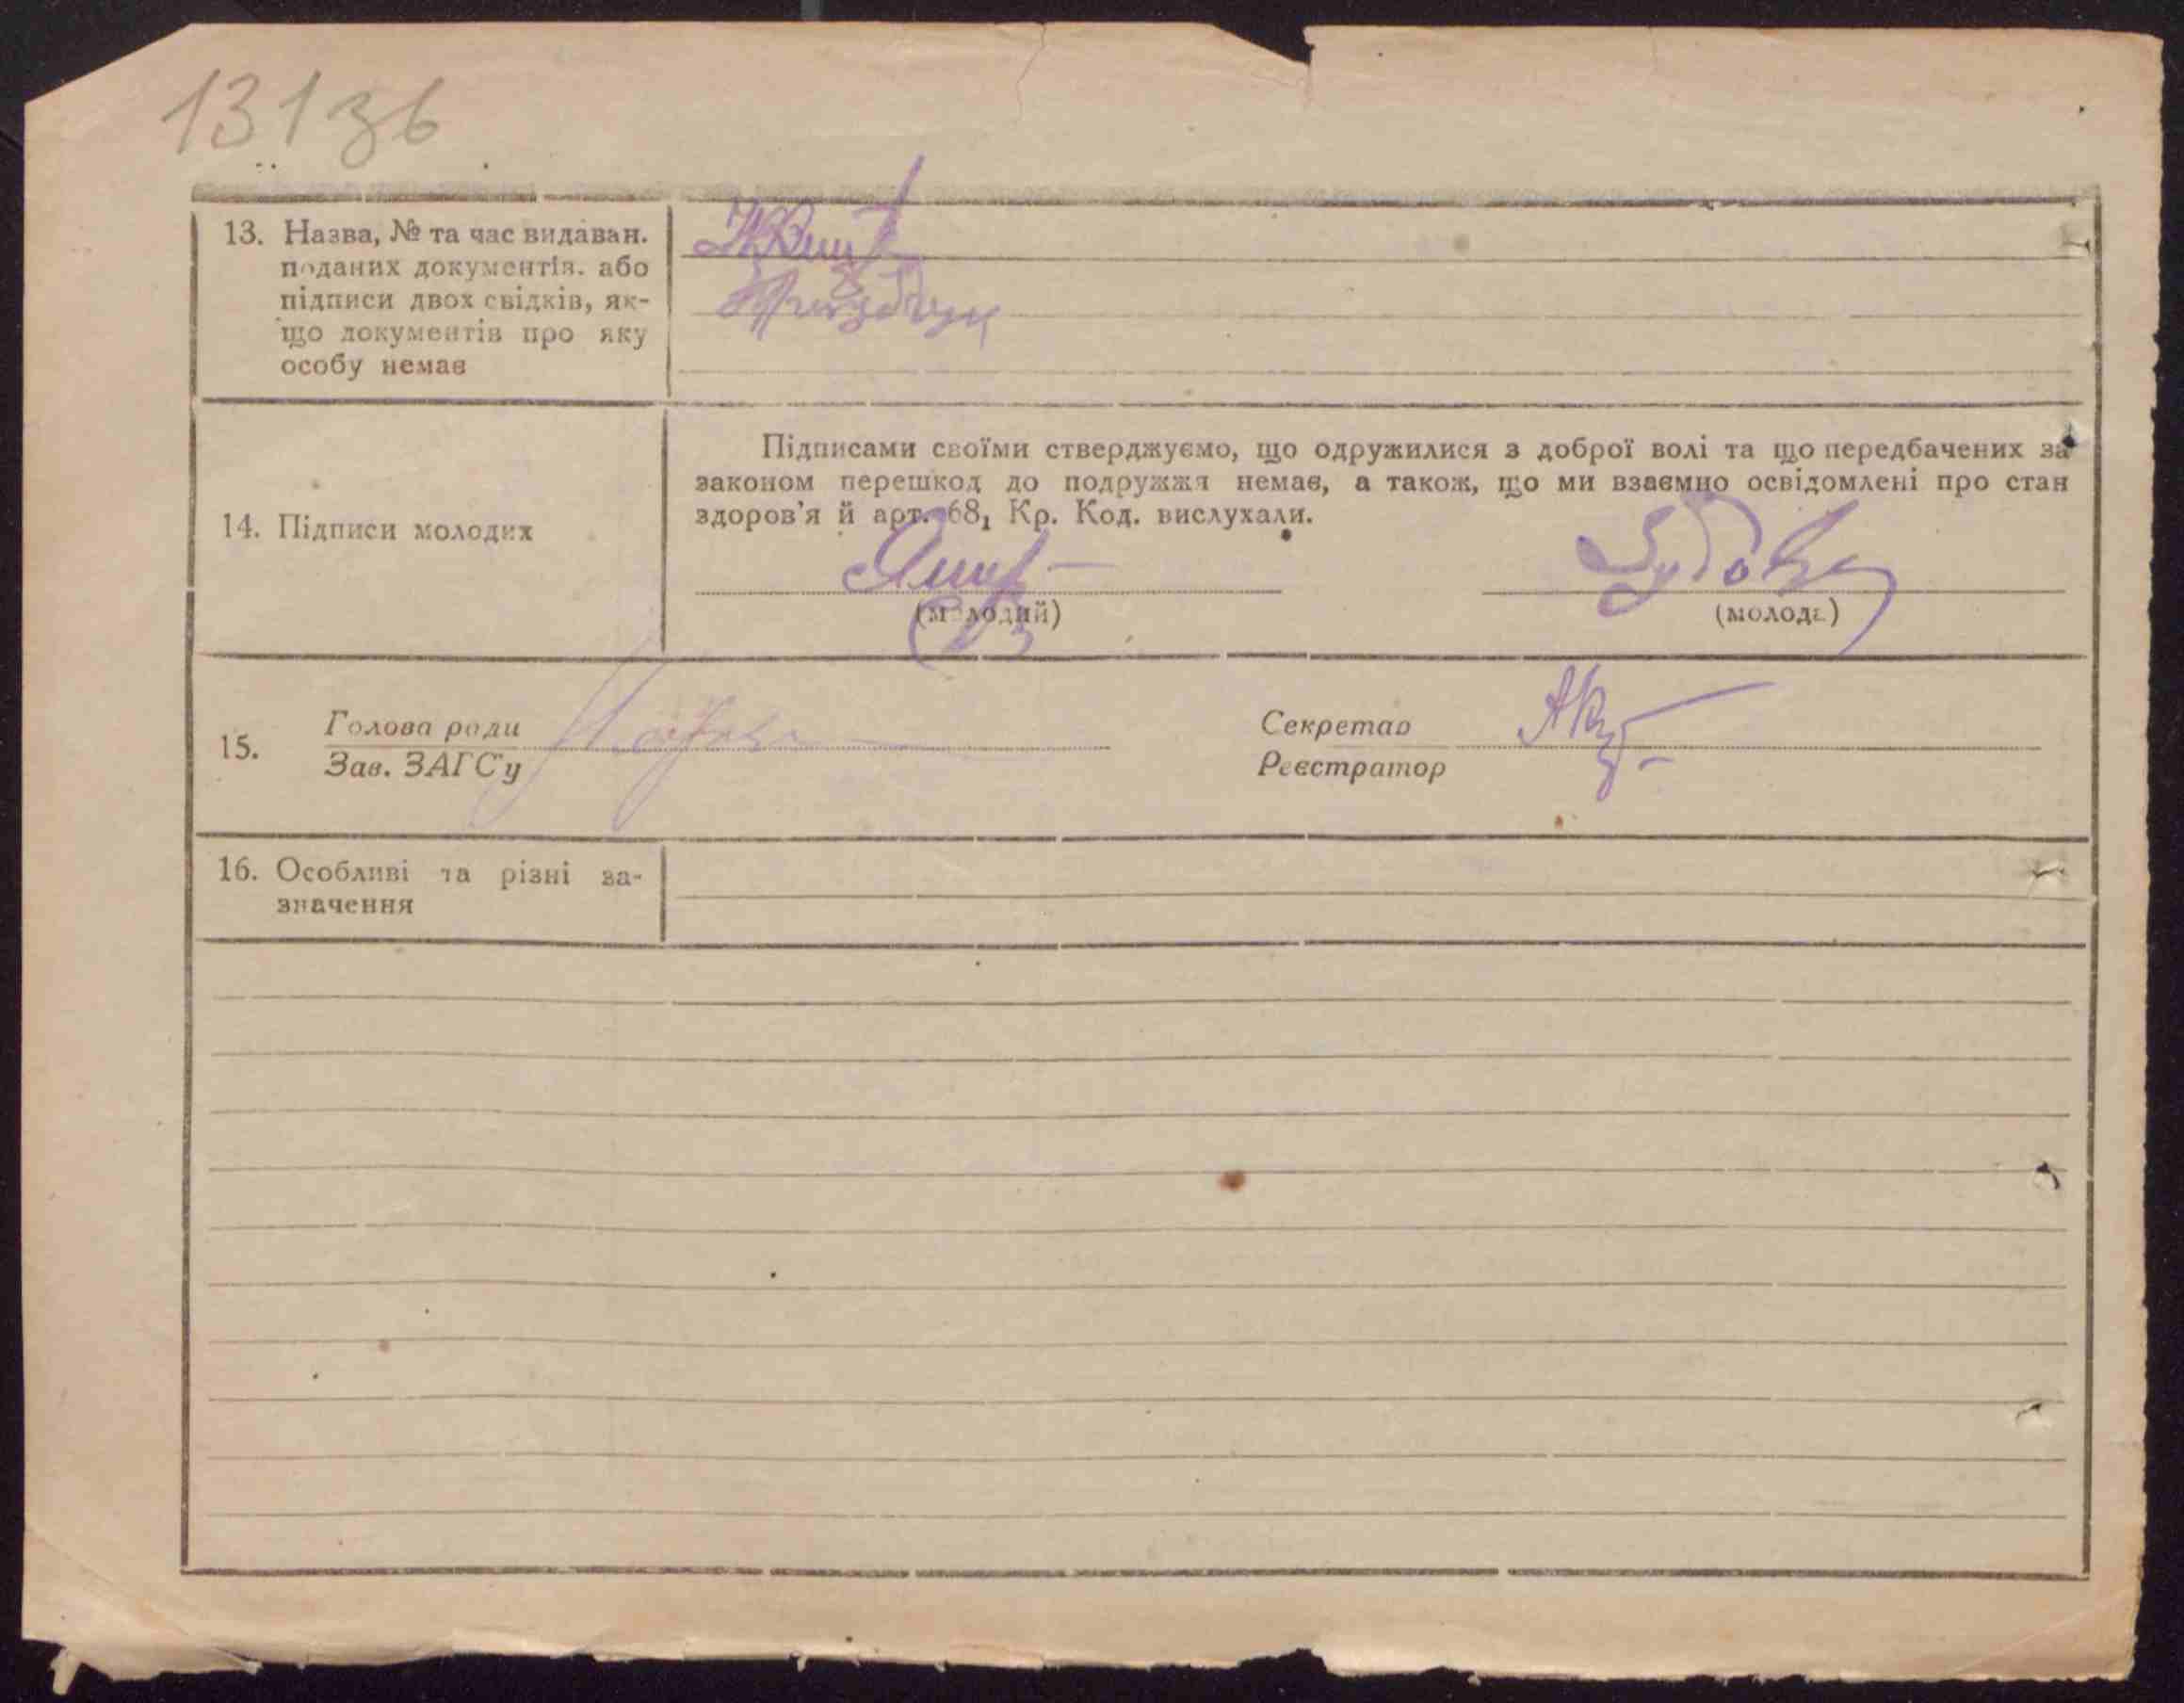 131зв
13. Назва, № та час видаван.
поданих документів. або
підписи двох свідків, як-
що документів про яку
особу немає
14. Підписи молодих
Підписами своїми стверджуємо, що одружилися з доброї волі та що передбачених за
законом перешкод до подружжя немає, а також, що ми взаємно освідомлені про стан
здоров'я й арт. 68₁ Кр. Код. вислухали.
(молодий)
(молода)
15. Голова ради
Зав. ЗАГСу
Секретар
Реєстратор
16. Особливі та різні за-
значення